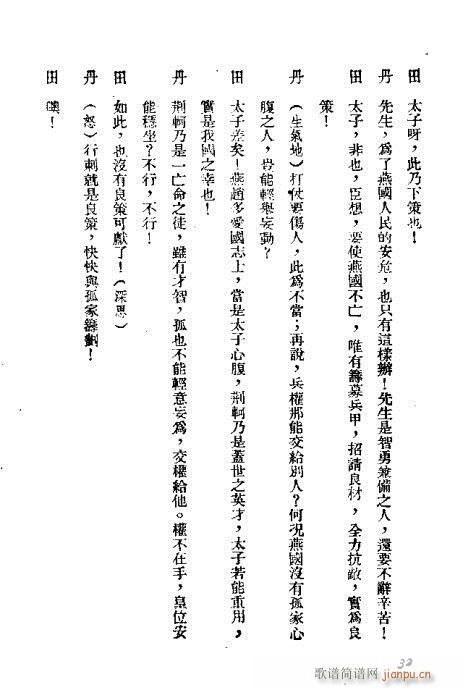 田　太子呀，此乃下策也！
丹　先生，爲了燕國人民的安危，也只有這樣辦！先生是智勇兼備之人，還要不辭辛苦！
田　太子，非也，臣想，要使燕國不亡，唯有籌募兵甲，招請良材，全力抗敵，實爲良
策！
丹　（生氣地）打仗要傷人，此爲不當；再說，兵權那能交給別人？何況燕國沒有孤家心
腹之人，豈能輕舉妄動？
田　太子差矣！燕趙多愛國志士，當是太子心腹，荆軻乃是蓋世之英才，太子若能重用，
實是我國之幸也！
丹　荆軻乃是一亡命之徒，雖有才智，孤也不能輕意妄爲，交權給他。權不在手，皇位安
能穩坐？不行，不行！
田　如此，也沒有良策可獻了！（深思）
丹　（怒）行刺就是良策，快快與孤家籌劃！
田　噢！
32
歌谱简谱网
jianpu.cn